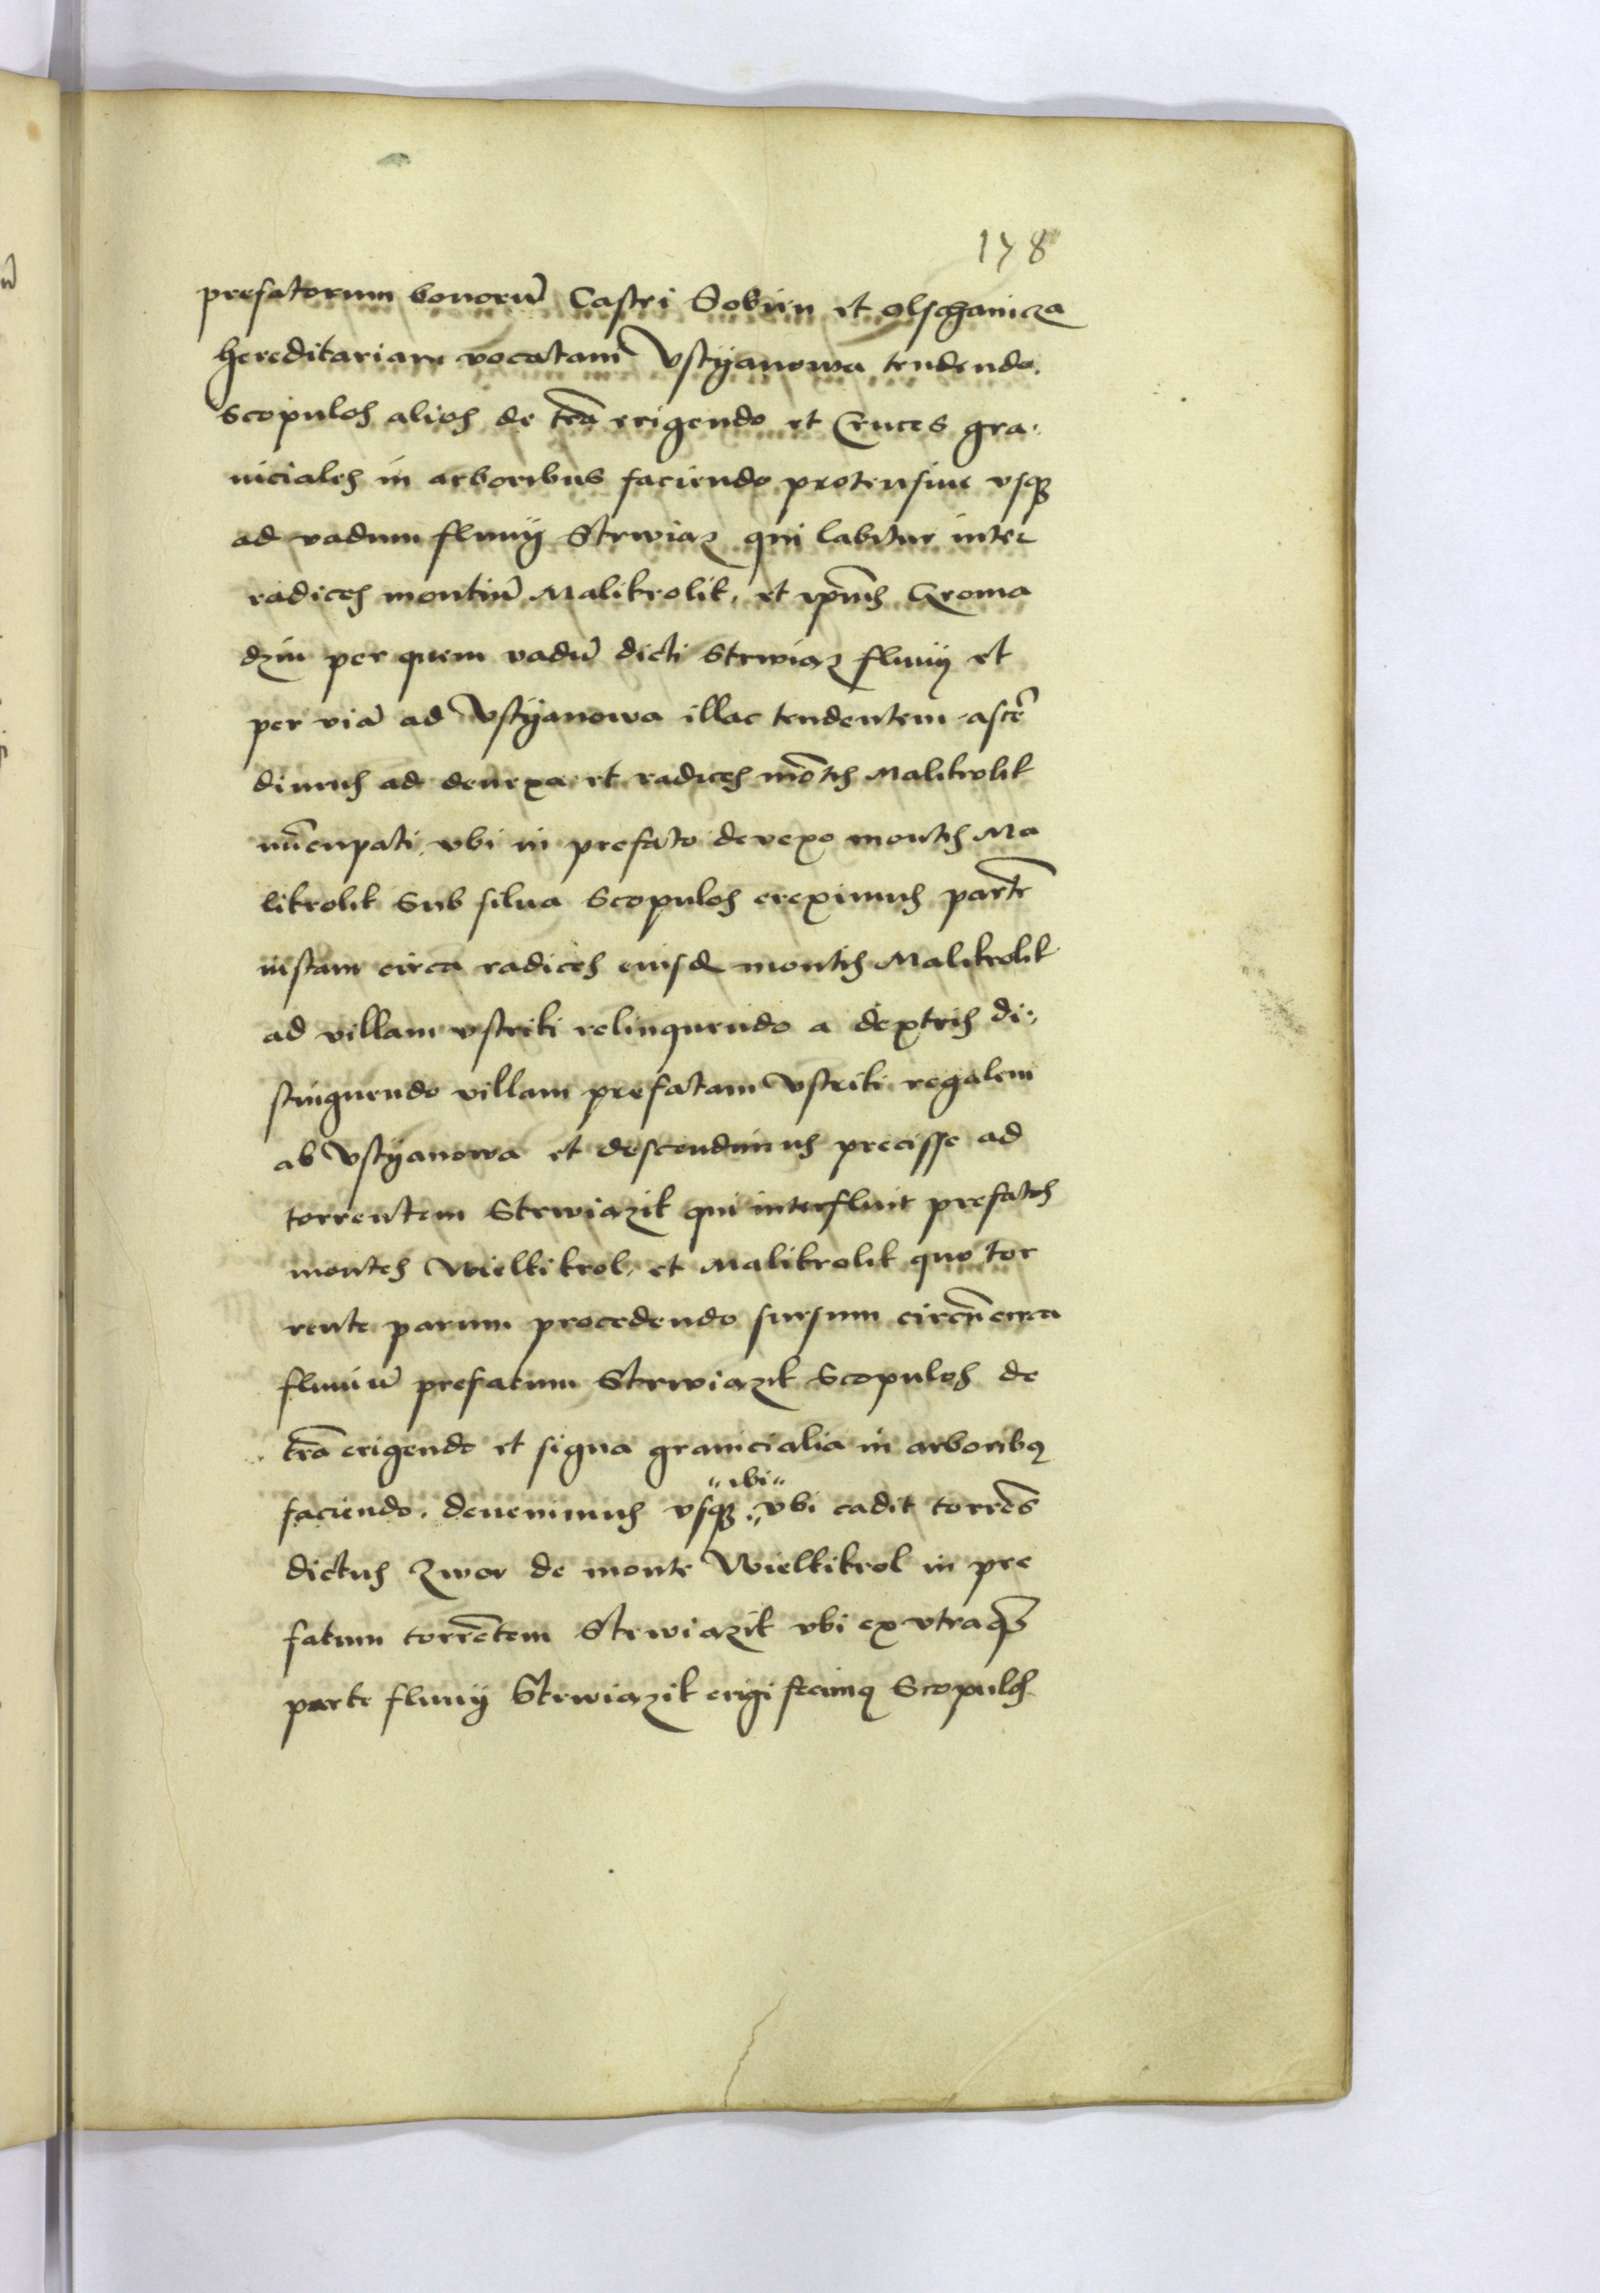 178
prefatorum bonorū Castri Sobien et olschanicza
hereditariam vocatam Vstyanowa tendendo.
Scopulos alios de trā erigendo et Cruces gra-
niciales in arboribus faciendo protensiue vsqꝫ
ad vadum fluuij Strwiaz qui labitur inter
radices montiū Malikrolik, et Groma
dzin per quem vadū dicti Strwiaz fluuij et
per viā ad Vstyanowa illac tendentem ascē
dimus ad deuexa et radices mōtis Malikrolik
nūcupati vbi in prefato devexo montis Ma
likrolik Sub silua Scopulos ereximus partē
istam circa radices eiusd montis Malikrolik
ad villam vstriki relinquendo a dextris di-
stinguendo villam prefatam Vstriki regalem
ab Vstyanowa et descendimus precisse ad
torrentem Strwiazik qui interfluit prefatos
montes Wielkikrol, et Malikrolik quo tor
rente parum procedendo sursum circūcirca
fluuiū prefatum Strwiazik Scopulos de
trā erigendo et signa granicialia in arboribꝰ
"ibi"
faciendo. deuenimus vsqꝫ " vbi cadit torrēs
dictus Zwor de monte Wielkikrol in pre
fatum torrētem Strwiazik vbi ex vtraqꝫ
parte fluuij Strwiazik erigi fecimꝰ Scopulos